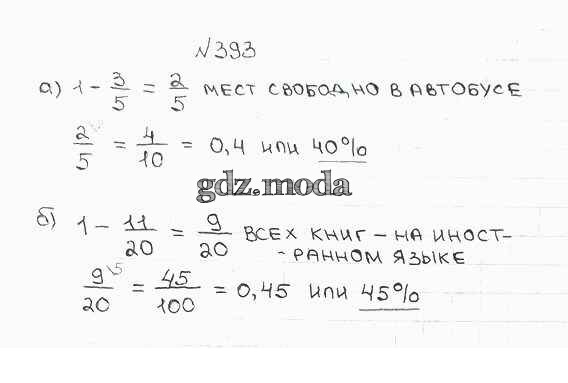 №393
а) 1 - 3/5 = 2/5 МЕСТ СВОБОДНО В АВТОБУСЕ
2/5 = 4/10 = 0,4 или 40%
gdz.moda
б) 1 - 11/20 = 9/20 ВСЕХ КНИГ - НА ИНОСТ-
- РАННОМ ЯЗЫКЕ
9\5/20 = 45/100 = 0,45 или 45%